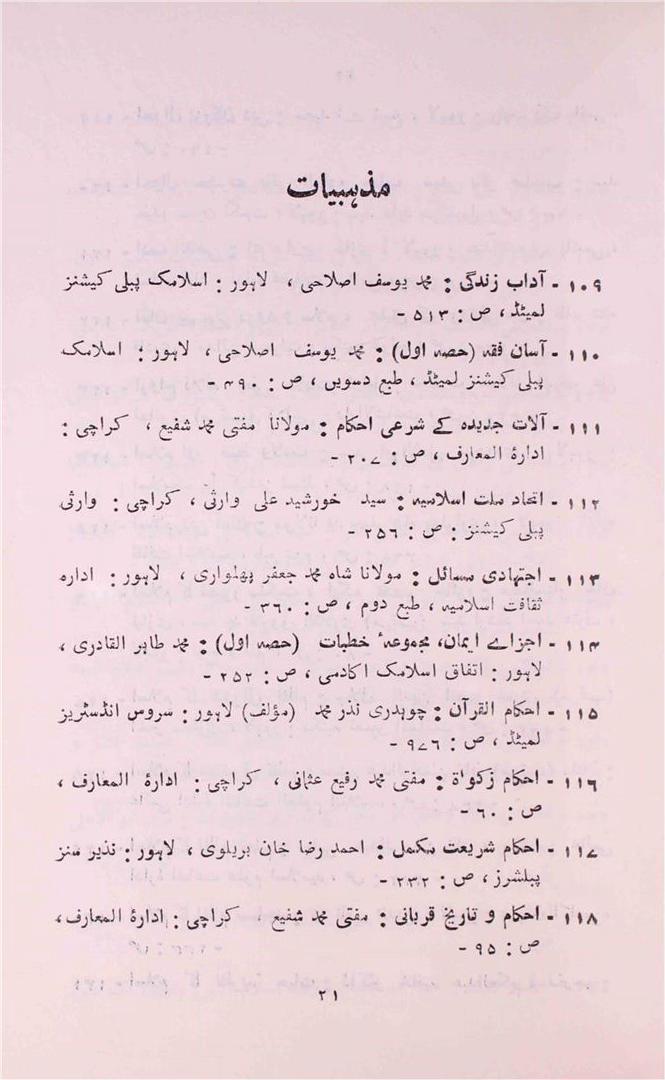 مذہبیات
۱۰۹ - آداب زندگی : محمد یوسف اصلاحی ، لاہور : اسلامک پبلی کیشنز
لمیٹڈ ، ص : ۵۱۳ -
۱۱۰ - آسان فقہ (حصہ اول) : محمد یوسف اصلاحی ، لاہور : اسلامک
پبلی کیشنز لمیٹڈ ، طبع دسویں ، ص : ۴۹۰ -
۱۱۱ - آلات جدیدہ کے شرعی احکام : مولانا مفتی محمد شفیع ، کراچی :
ادارۃ المعارف ، ص : ۲۰۷ -
۱۱۲ - اتحاد ملت اسلامیہ : سید خورشید علی وارثی ، کراچی : وارثی
پبلی کیشنز : ص : ۲۵۶ -
۱۱۳ - اجتہادی مسائل : مولانا شاہ محمد جعفر پھلواری ، لاہور : ادارہ
ثقافت اسلامیہ ، طبع دوم ، ص : ۳۶۰ -
۱۱۴ - اجزاے ایمان، مجموعۂ خطبات (حصہ اول) : محمد طاہر القادری ،
لاہور : اتفاق اسلامک اکادمی ، ص : ۲۵۲ -
۱۱۵ - احکام القرآن : چوہدری نذر محمد (مؤلف) لاہور : سروس انڈسٹریز
لمیٹڈ ، ص : ۹۷۶ -
۱۱۶ - احکام زکواۃ : مفتی محمد رفیع عثمانی ، کراچی : ادارۃ المعارف ،
ص : ۶۰ -
۱۱۷ - احکام شریعت مکمل : احمد رضا خان بریلوی ، لاہور : نذیر سنز
پبلشرز ، ص : ۲۳۲ -
۱۱۸ - احکام و تاریخ قربانی : مفتی محمد شفیع ، کراچی : ادارۃ المعارف ،
ص : ۹۵ -
۲۱